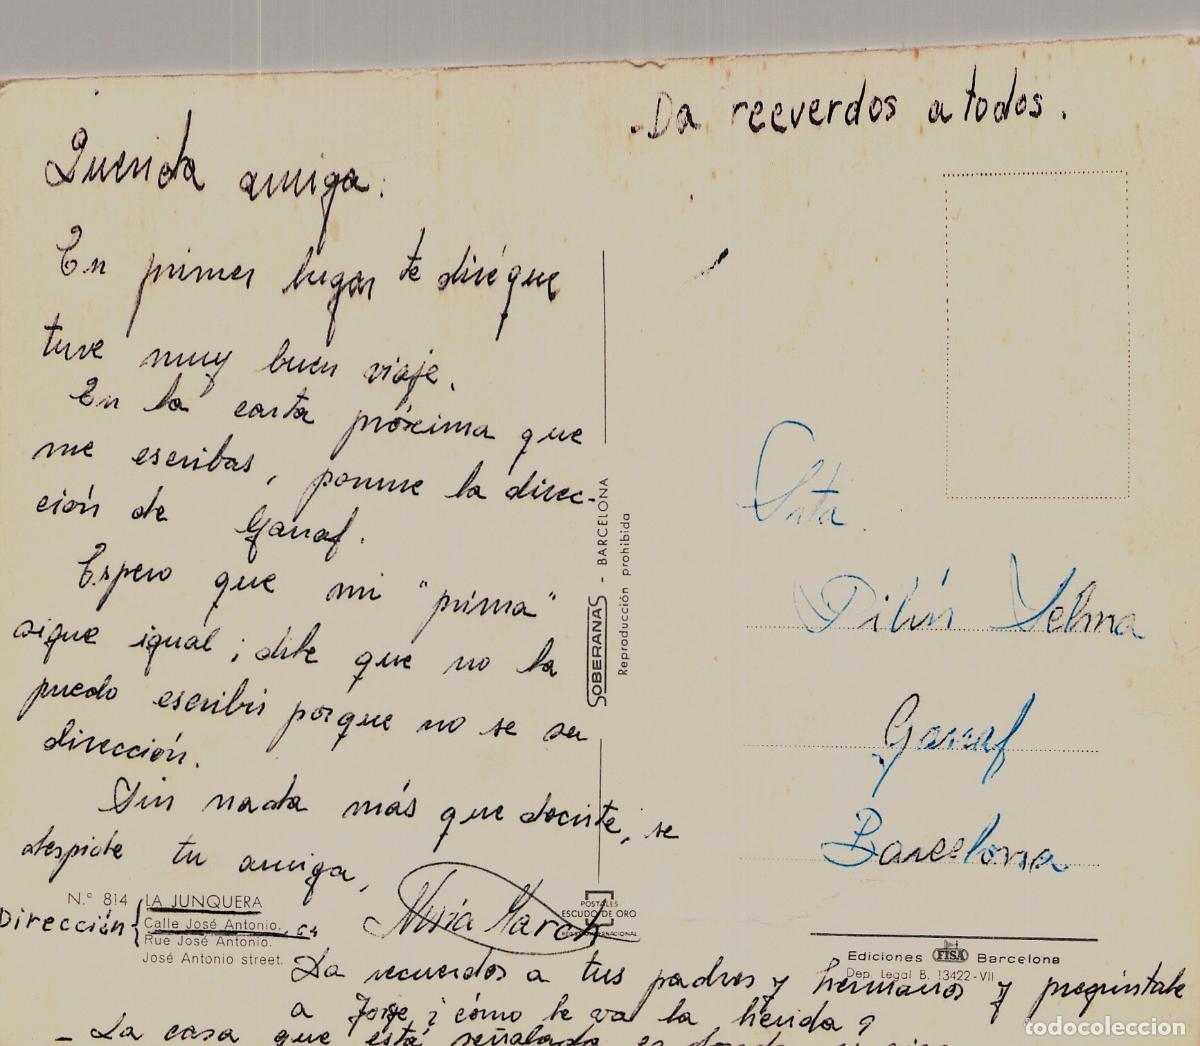 -Da recuerdos a todos.
Querida amiga:
En primer lugar te diré que
tuve muy buen viaje.
En la carta próxima que
me escribas, ponme la direc-
ción de Garraf.
Espero que mi "prima"
sigue igual; dile que no la
puedo escribir porque no se su
dirección.
Sin nada más que decirte, se
despide tu amiga,
Nuria March
Nº 814 LA JUNQUERA
Dirección { Calle José Antonio. 64
Rue José Antonio.
José Antonio street.
Da recuerdos a tus padres y hermanos y pregúntale
a Jorge ¿cómo le va la herida?
- La casa que está señalada es donde
SOBERANAS - BARCELONA
Reproducción prohibida
POSTALES
ESCUDO DE ORO
Srta.
Pilín Selma
Garraf
Barcelona
Ediciones FISA Barcelona
Dep. Legal B. 13422-VII
todocoleccion